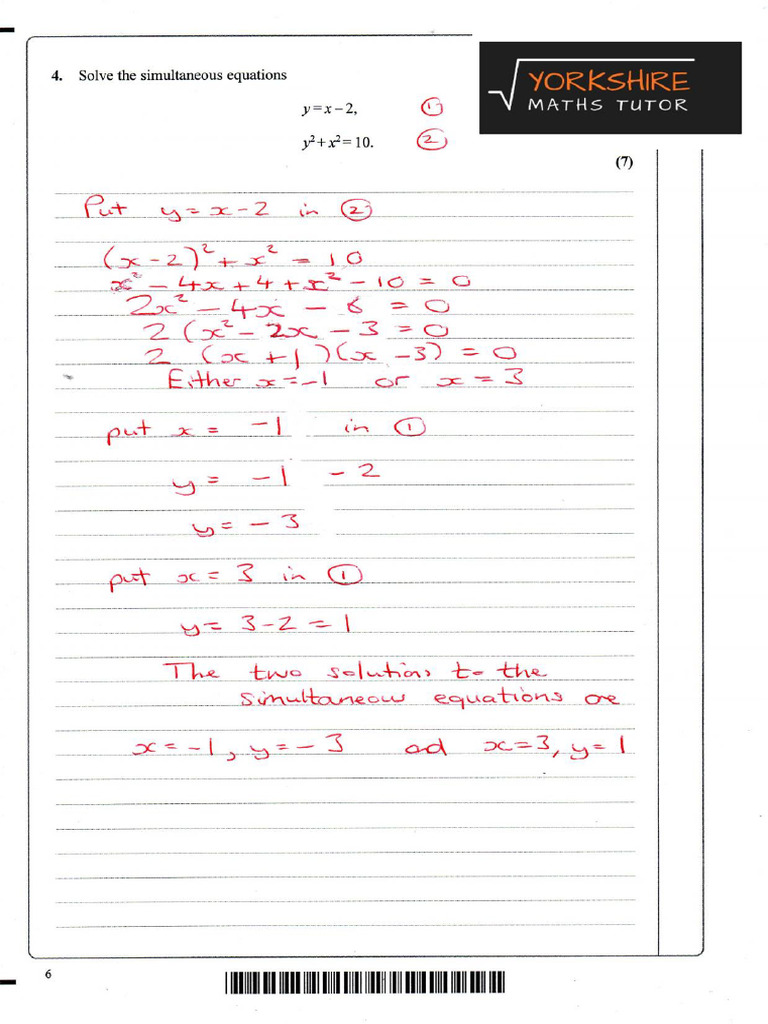 YORKSHIRE
MATHS TUTOR
4. Solve the simultaneous equations
y = x – 2, ①
y² + x² = 10. ②
(7)
Put y = x - 2 in ②
(x - 2)² + x² = 10
x² - 4x + 4 + x² - 10 = 0
2x² - 4x - 6 = 0
2 (x² - 2x - 3 = 0
2 (x + 1)(x - 3) = 0
Either x = -1 or x = 3
put x = -1 in ①
y = -1 - 2
y = - 3
put x = 3 in ①
y = 3 - 2 = 1
The two solutions to the
simultaneous equations are
x = -1, y = - 3 ad x = 3, y = 1
6